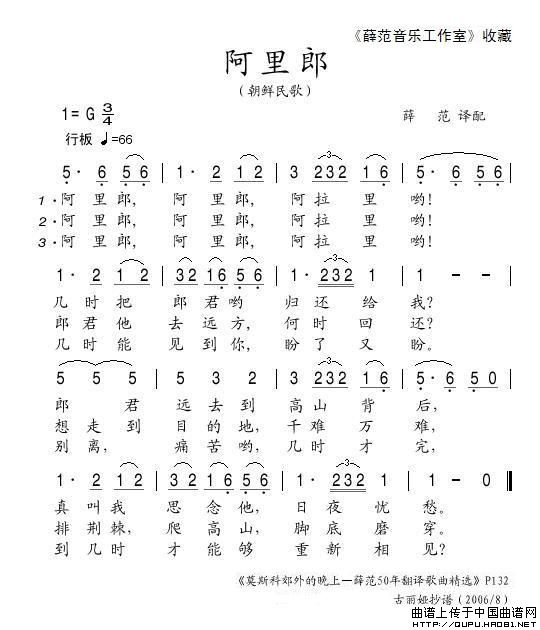 《薛范音乐工作室》收藏
阿里郎
（朝鲜民歌）
1=G 3/4
薛 范 译配
行板 ♩=66
5· 6 5 6 | 1· 2 1 2 | 3 232 1 6 | 5· 6 5 6 |
1·阿里郎，阿里郎，阿拉里哟！
2·阿里郎，阿里郎，阿拉里哟！
3·阿里郎，阿里郎，阿拉里哟！
1· 2 1 2 | 32 16 5 6 | 1· 232 1 | 1 - - |
几时把郎君哟归还给我？
郎君他去远方，何时回还？
几时能见到你，盼了又盼。
5 5 5 | 5 3 2 | 3 232 1 6 | 5· 6 5 0 |
郎君远去到高山背后，
想走到目的地，千难万难，
别离，痛苦哟，几时才完，
1· 2 1 2 | 32 16 5 6 | 1· 232 1 | 1 - - ‖
真叫我思念他，日夜忧愁。
排荆棘，爬高山，脚底磨穿。
到几时才能够重新相见？
《莫斯科郊外的晚上—薛范50年翻译歌曲精选》P132
古丽娅抄谱（2006/8）
曲谱上传于中国曲谱网
HTTP://QUPU.HAO81.NET